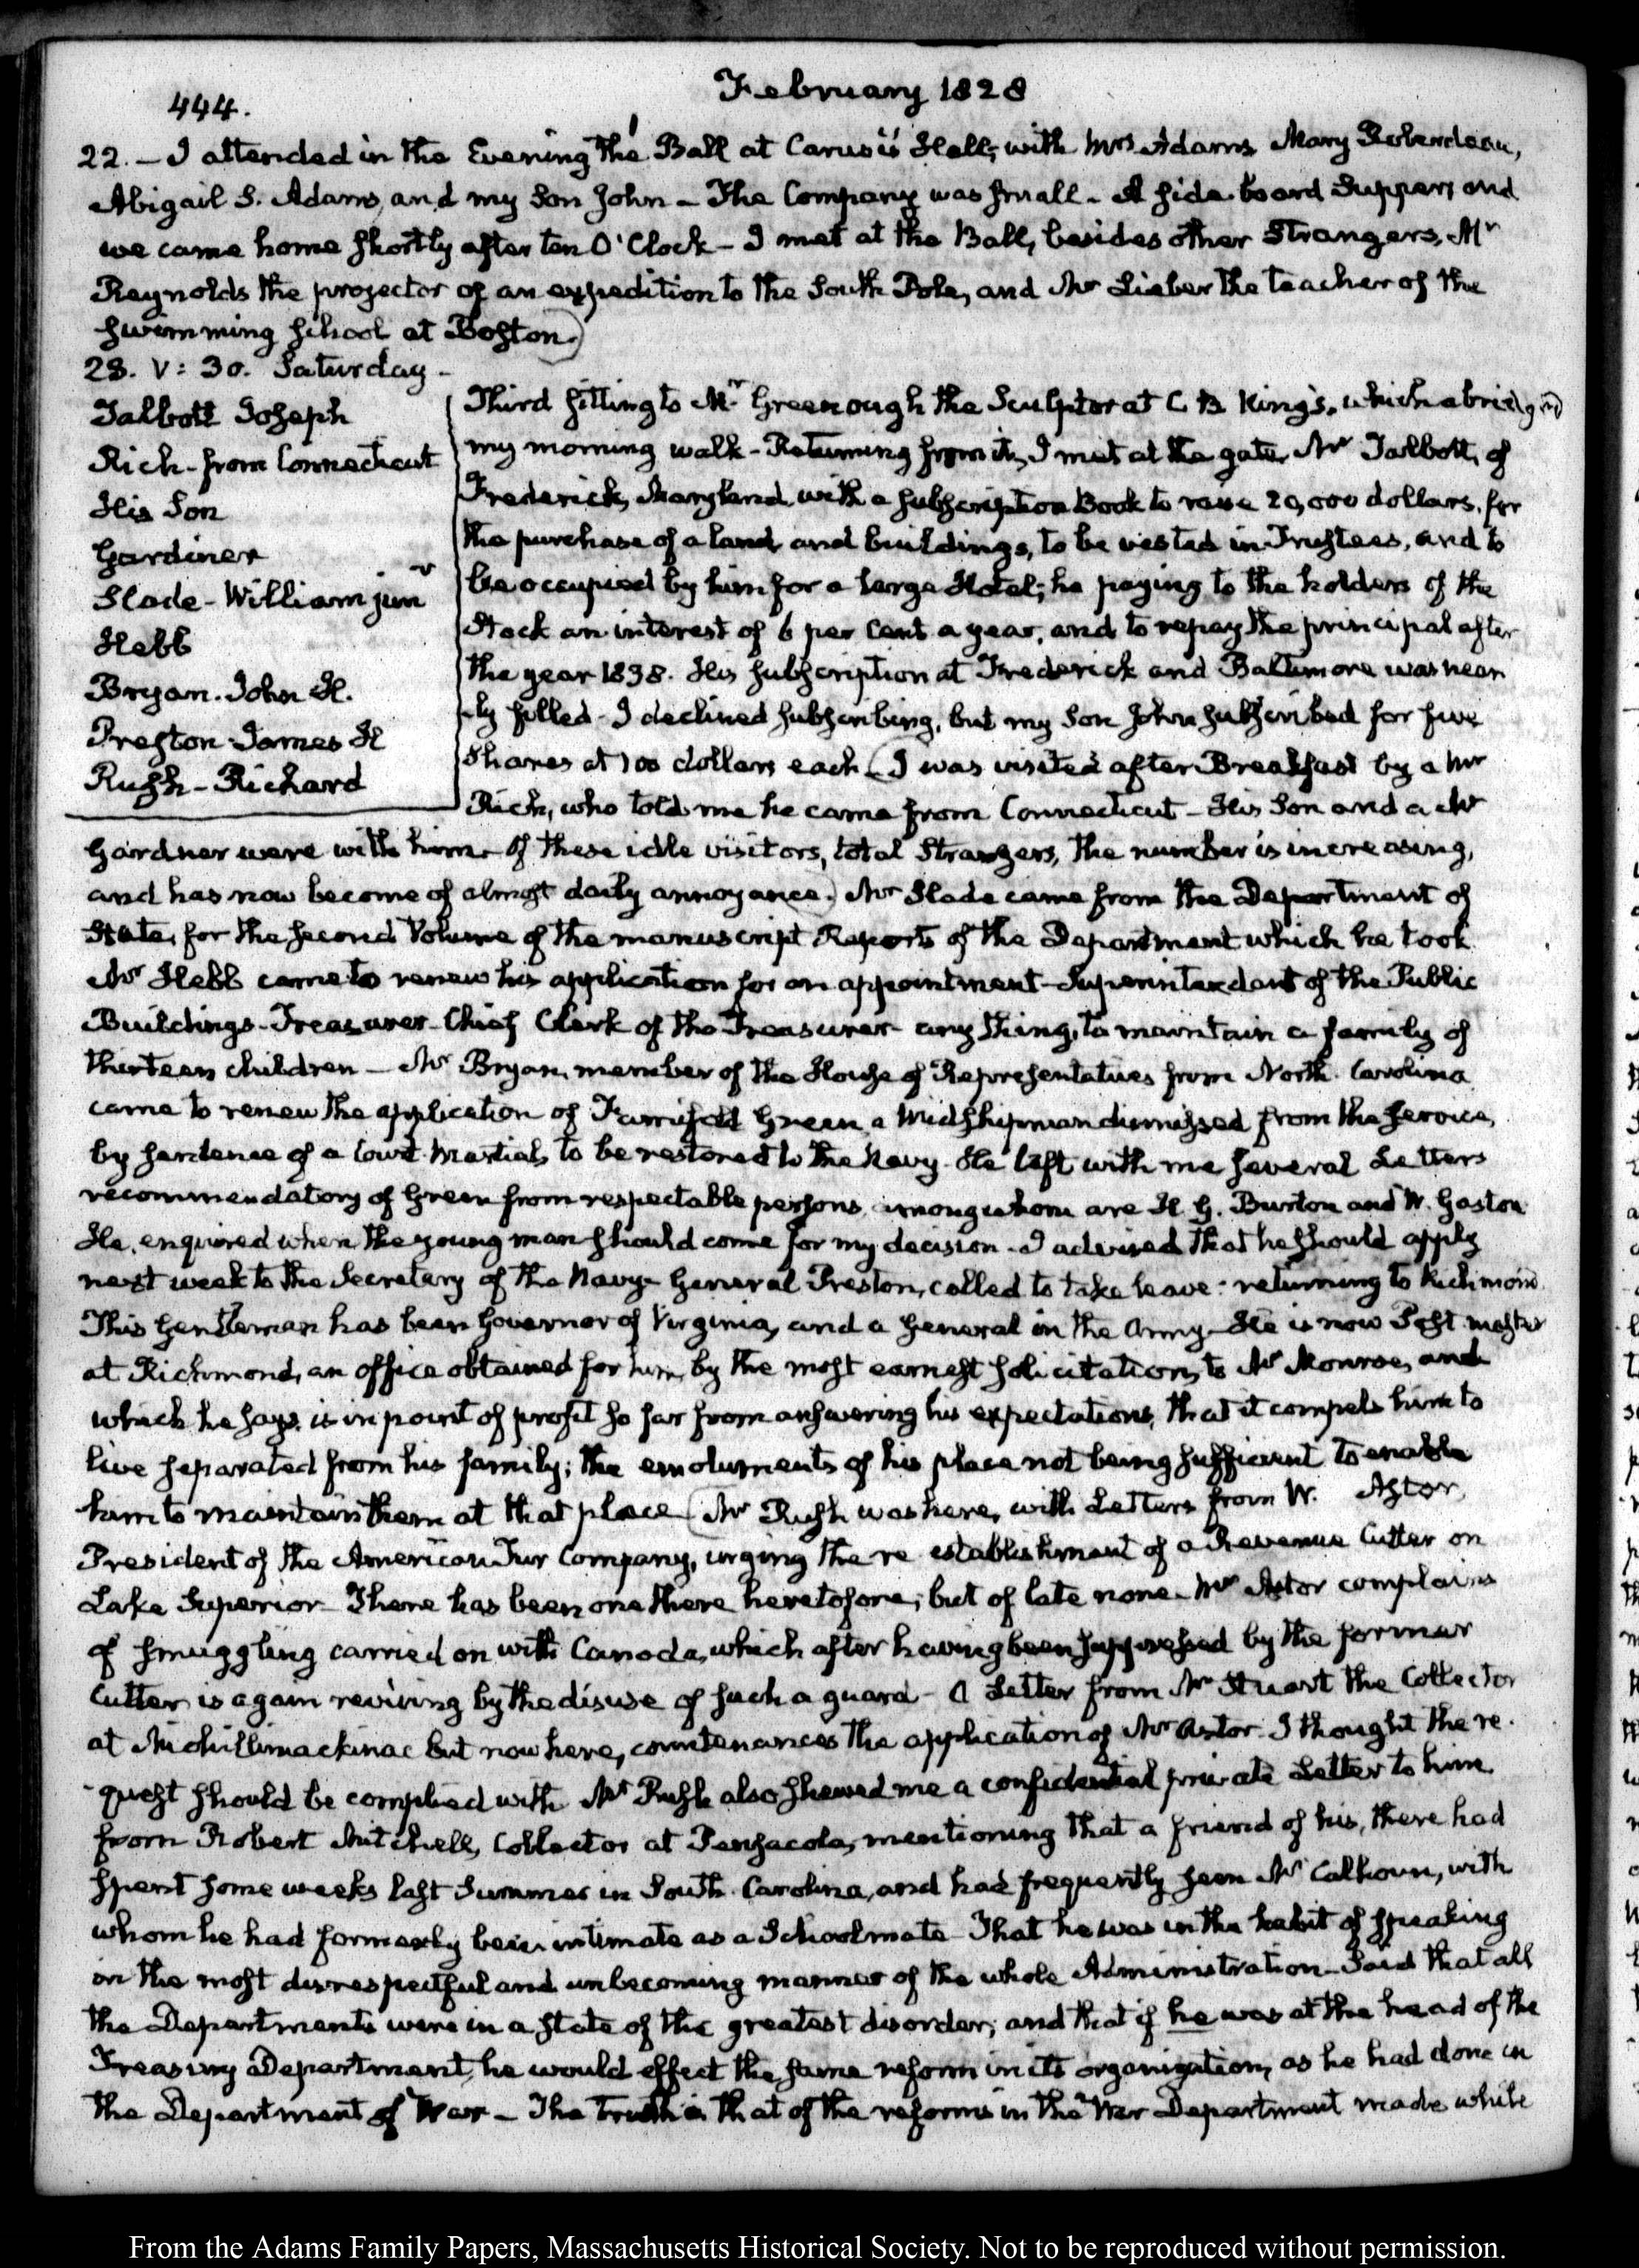 444.
February 1828
22. – I attended in the Evening the Ball at Carusi's Hall, with Mrs Adams Mary Roberdeau,
Abigail S. Adams, and my Son John – The Company was small – A side board Supper, and
we came home shortly after ten O'Clock – I met at the Ball, besides other Strangers, Mr
Reynolds the projector of an expedition to the South Pole, and Mr Lieber the teacher of the
swimming school at Boston.)
23. V: 30. Saturday –
Talbott Joseph
Rich – from Connecticut
His Son
Gardiner
Slade – William junr
Hebb
Bryan. John H.
Preston James H
Rush – Richard
Third sitting to Mr Greenough the Sculptor at C B King's, which abridged
my morning walk – Returning from it, I met at the gate, Mr Talbott, of
Frederick, Maryland with a subscription Book to raise 20,000 dollars, for
the purchase of a land and buildings, to be vested in Trustees, and to
be occupied by him for a large Hotel; he paying to the holders of the
Stock an interest of 6 per Cent a year, and to repay the principal after
the year 1838. His subscription at Frederick and Baltimore was near
-ly filled – I declined subscribing, but my Son John subscribed for five
shares at 100 dollars each (I was visited after Breakfast by a Mr
Rich, who told me he came from Connecticut – His Son and a Mr
Gardner were with him. Of these idle visitors, total Strangers, the number is increasing,
and has now become of almost daily annoyance.) Mr Slade came from the Department of
State, for the second Volume of the manuscript Reports of the Department which he took
Mr Hebb came to renew his application for an appointment – Superintendant of the Public
Buildings – Treasurer – Chief Clerk of the Treasurer – any thing, to maintain a family of
thirteen children – Mr Bryan, member of the House of Representatives from North Carolina
came to renew the application of Green, a Midshipman dismissed from the service,
by sentence of a Court Martial, to be restored to the Navy. He left with me several Letters
recommendatory of Green from respectable persons, among whom are H. G. Burton and W. Gaston
He enquired when the young man should come for my decision – I advised that he should apply
next week to the Secretary of the Navy – General Preston, called to take leave: returning to Richmond
This Gentleman has been Governor of Virginia, and a General in the Army – He is now Post master
at Richmond, an office obtained for him, by the most earnest solicitations, to Mr Monroe, and
which he says, is in point of profit so far from answering his expectations, that it compels him to
live separated from his family; the emoluments of his place not being sufficient to enable
him to maintain them at that place (Mr Rush was here, with Letters from W. Astor,
President of the American Fur Company, urging the re establishment of a Revenue Cutter on
Lake Superior – There has been one there heretofore; but of late none – Mr Astor complains
of smuggling carried on with Canada, which after having been suppressed by the former
Cutter is again reviving by the disuse of such a guard – A Letter from Mr Stuart the Collector
at Michillimackinac but now here, countenances the application of Mr Astor. I thought the re-
-quest should be complied with Mr Rush also shewed me a confidential private Letter to him
from Robert Mitchell, Collector at Pensacola, mentioning that a friend of his, there had
spent some weeks last Summer in South Carolina, and had frequently seen Mr Calhoun, with
whom he had formerly been intimate as a Schoolmate – That he was in the habit of speaking
in the most disrespectful and unbecoming manner of the whole Administration – Said that all
the Departments were in a state of the greatest disorder; and that if he was at the head of the
Treasury Department, he would effect the same reform in its organization, as he had done in
the Department of War – The truth is that of the reforms in the War Department made while
From the Adams Family Papers, Massachusetts Historical Society. Not to be reproduced without permission.